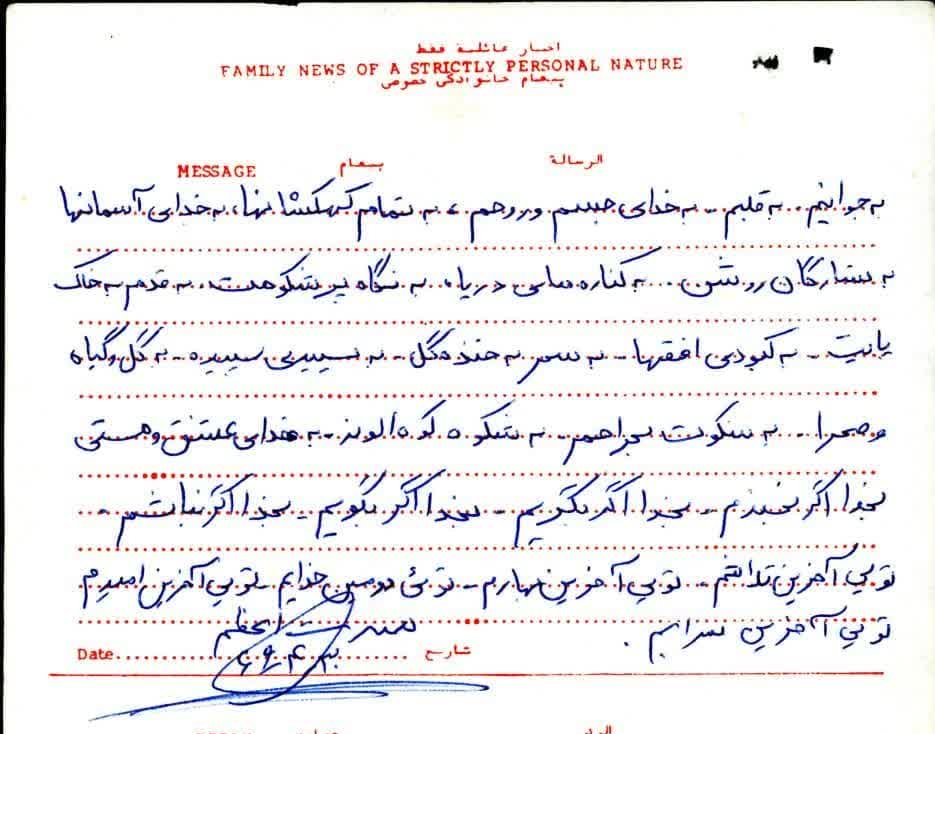 اخبار عائلية فقط
FAMILY NEWS OF A STRICTLY PERSONAL NATURE
پیغام خانوادگی خصوصی
MESSAGE پیغام الرسالة
به جوانیم .. به قلبم - به خدای جسم و روحم ، به تمام کهکشانها، به خدای آسمانها
به ستارگان روشن ... به کناره های دریا، به نگاه پر شکوهت، به قدم به خاک
پایت - به کبودی افقها - به سحر به خنده گل - به سپیدی سپیده - به گل و گیاه
و صحرا - به سکوت بحراحم - به شکوه کوه الوند - به خدای عشق و هستی
بخدا اگر بخندم - بخدا اگر بگریم - بخدا اگر بگویم - بخدا اگر نباشم -
تویی آخرین تلاشم - تویی آخرین بهارم - توئی دومین خدایم - تویی آخرین امیدم
تویی آخرین سرابم .
Date تاریخ